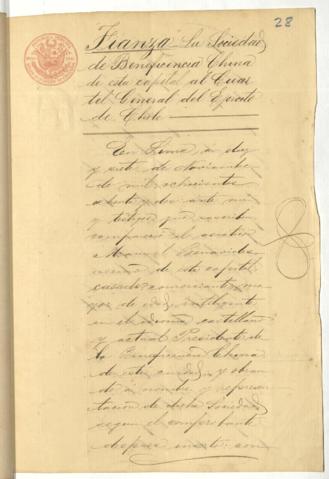 28
Fianza La Sociedad
de Beneficencia China
de esta capital al Cuar
tel General del Ejército
de Chile
En Lima á diez
y siete de Noviembre
de mil ochocientos
ochenta y dos ante mi
y testigos que suscriben
compareció el
Manuel Benavides
vecino de esta capital
casado comerciante, ma
yor de edad, inteligente
en el idioma castellano
y actual Presidente de
la Beneficencia China
de esta ciudad y obran
do á nombre y represen
tación de dicha Sociedad
según el comprobante
después inserto: con